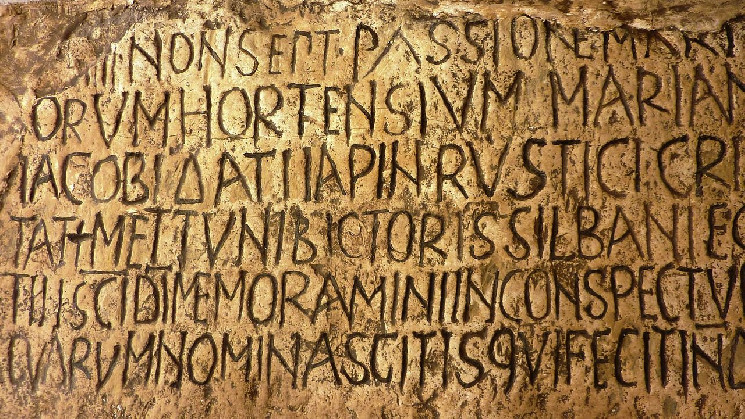 IIII NON SEPT PASSIONE MART
ORVM HORTENSIVM MARIAN
IACOBI DATI IAPIN RVSTICI CRI
TATI METTVNI BICTORIS SILBANI EG
TII SCI DI MEMORAMINI IN CONSPECTV
QVORVM NOMINA SCITIS QVI FECIT IN